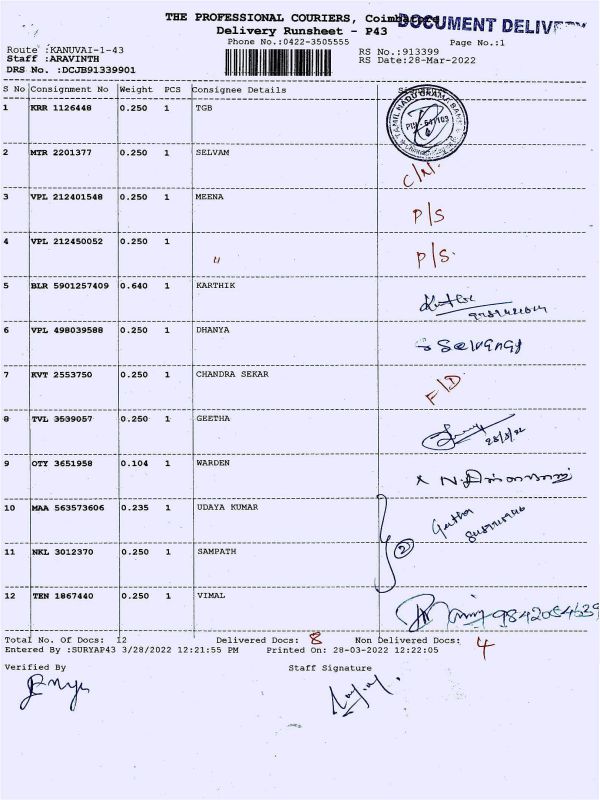 THE PROFESSIONAL COURIERS, Coimbatore
DOCUMENT DELIVERY
Delivery Runsheet - P43
Phone No.:0422-3505555
Page No.:1
Route :KANUVAI-1-43
RS No.:913399
Staff :ARAVINTH
RS Date:28-Mar-2022
DRS No. :DCJB91339901
S No Consignment No Weight PCS Consignee Details
1 KRR 1126448 0.250 1 TGB
TAMIL NADU GRAMA BANK
2 MTR 2201377 0.250 1 SELVAM C/N.
3 VPL 212401548 0.250 1 MEENA P/S
4 VPL 212450052 0.250 1 " P/S.
5 BLR 5901257409 0.640 1 KARTHIK
6 VPL 498039588 0.250 1 DHANYA
7 KVT 2553750 0.250 1 CHANDRA SEKAR F/D
8 TVL 3539057 0.250 1 GEETHA 28/3/22
9 OTY 3651958 0.104 1 WARDEN
10 MAA 563573606 0.235 1 UDAYA KUMAR
11 NKL 3012370 0.250 1 SAMPATH 2
12 TEN 1867440 0.250 1 VIMAL
Total No. Of Docs: 12 Delivered Docs: 8 Non Delivered Docs: 4
Entered By :SURYAP43 3/28/2022 12:21:55 PM Printed On: 28-03-2022 12:22:05
Verified By Staff Signature